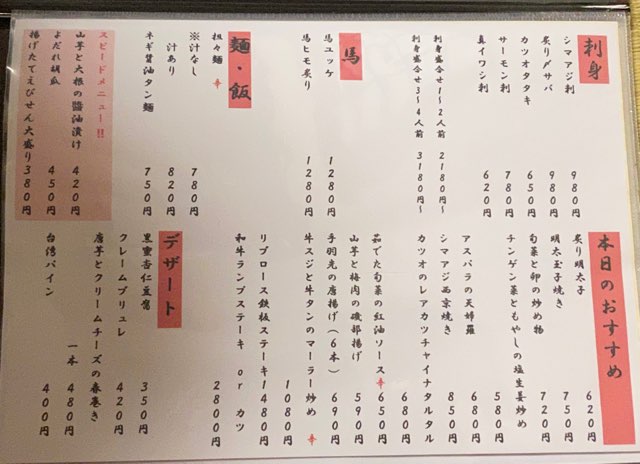 刺身
シマアジ刺 980円
炙り〆サバ 980円
カツオタタキ 650円
サーモン刺 780円
真イワシ刺 620円
刺身盛合せ1〜2人前 2180円〜
刺身盛合せ3〜4人前 3180円〜
馬
馬ユッケ 1280円
馬ヒモ炙り 1280円
麺・飯
担々麺 辛
※汁なし 780円
汁あり 820円
ネギ醤油タン麺 750円
スピードメニュー!!
山芋と大根の醬油漬け 420円
よだれ胡瓜 450円
揚げたてえびせん大盛り 380円
本日のおすすめ
炙り明太子 620円
明太玉子焼き 750円
旬菜と卵の炒め物 720円
チンゲン菜ともやしの塩生姜炒め 580円
アスパラの天婦羅 680円
シマアジ西京焼き 850円
カツオのレアカツチャイナタルタル 680円
茹でた旬菜の紅油ソース 辛 650円
山芋と梅肉の磯部揚げ 590円
手羽先の唐揚げ(6本) 690円
牛スジと牛タンのマーラー炒め 辛 1080円
リブロース鉄板ステーキ 1480円
和牛ランプステーキ or カツ 2800円
デザート
黒蜜杏仁豆腐 350円
クレームブリュレ 420円
唐芋とクリームチーズの春巻き 一本 480円
台湾パイン 400円